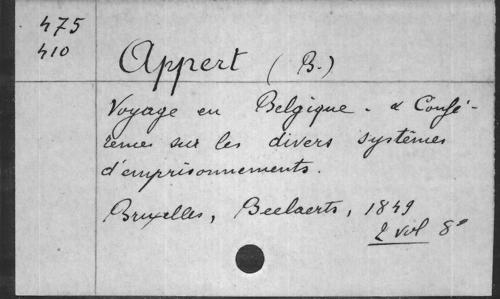 475
410
Appert (B.)
Voyage en Belgique. & Confé-
rences sur les divers systèmes
d'emprisonnements.
Bruxelles, Beelaerts, 1849
2 vol 8º